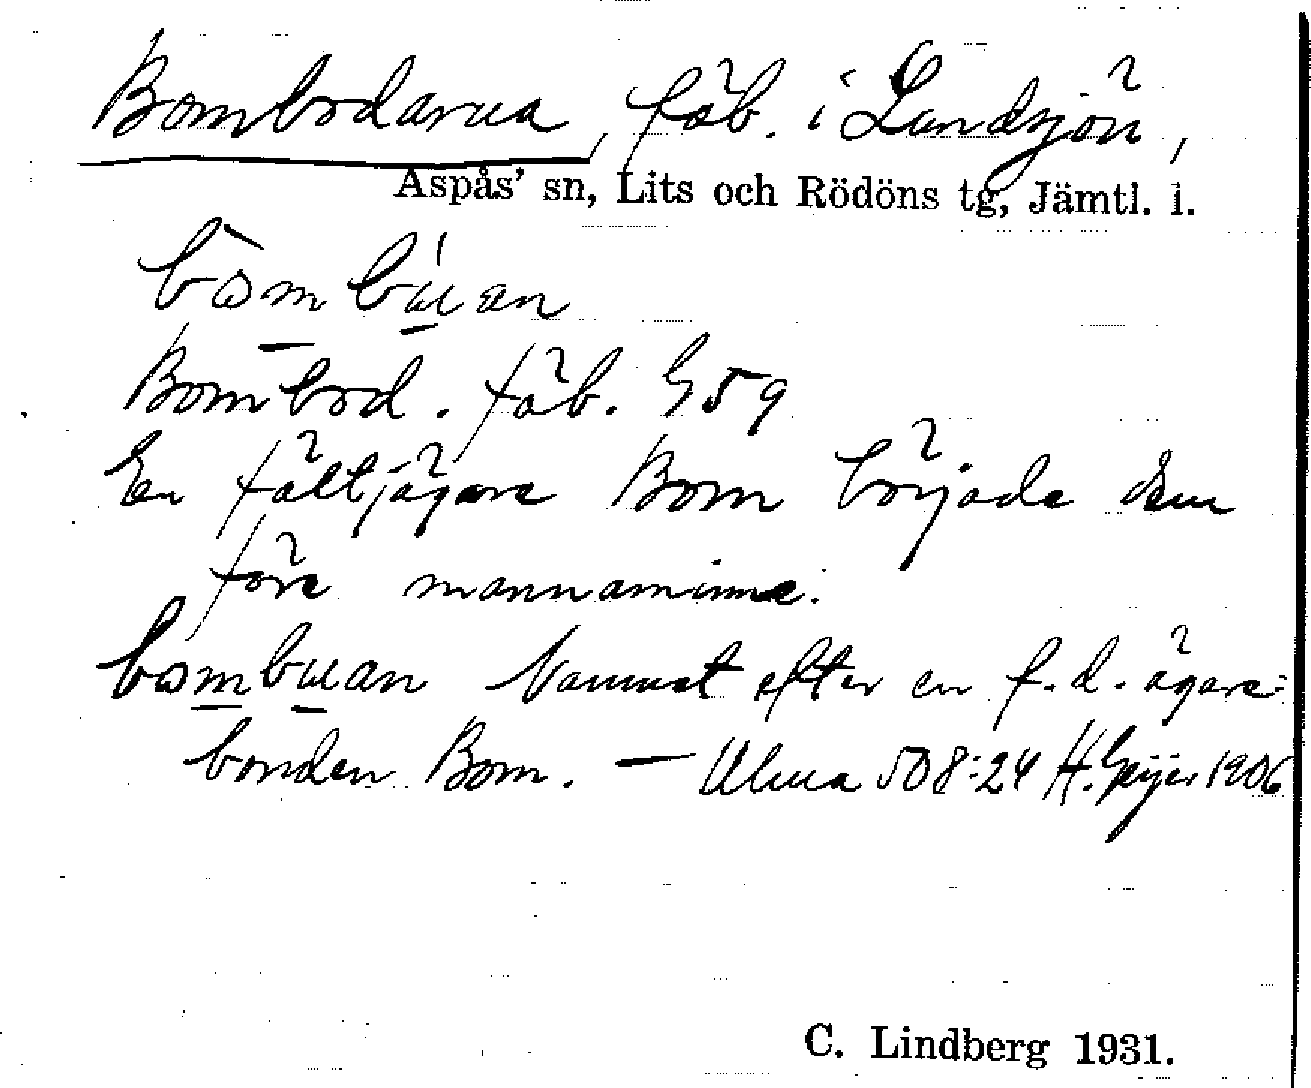 Bombodarna, fäb. i Landsjön,
Aspås' sn, Lits och Rödöns tg, Jämtl. l.
bòmbúan
Bombod. fäb. G59
En fältjägare Bom började den
före mannaminne.
bombuan Namnet efter en f.d. ägare:
bonden Bom. — Ulma 508:24 H. Geijer 1906
C. Lindberg 1931.